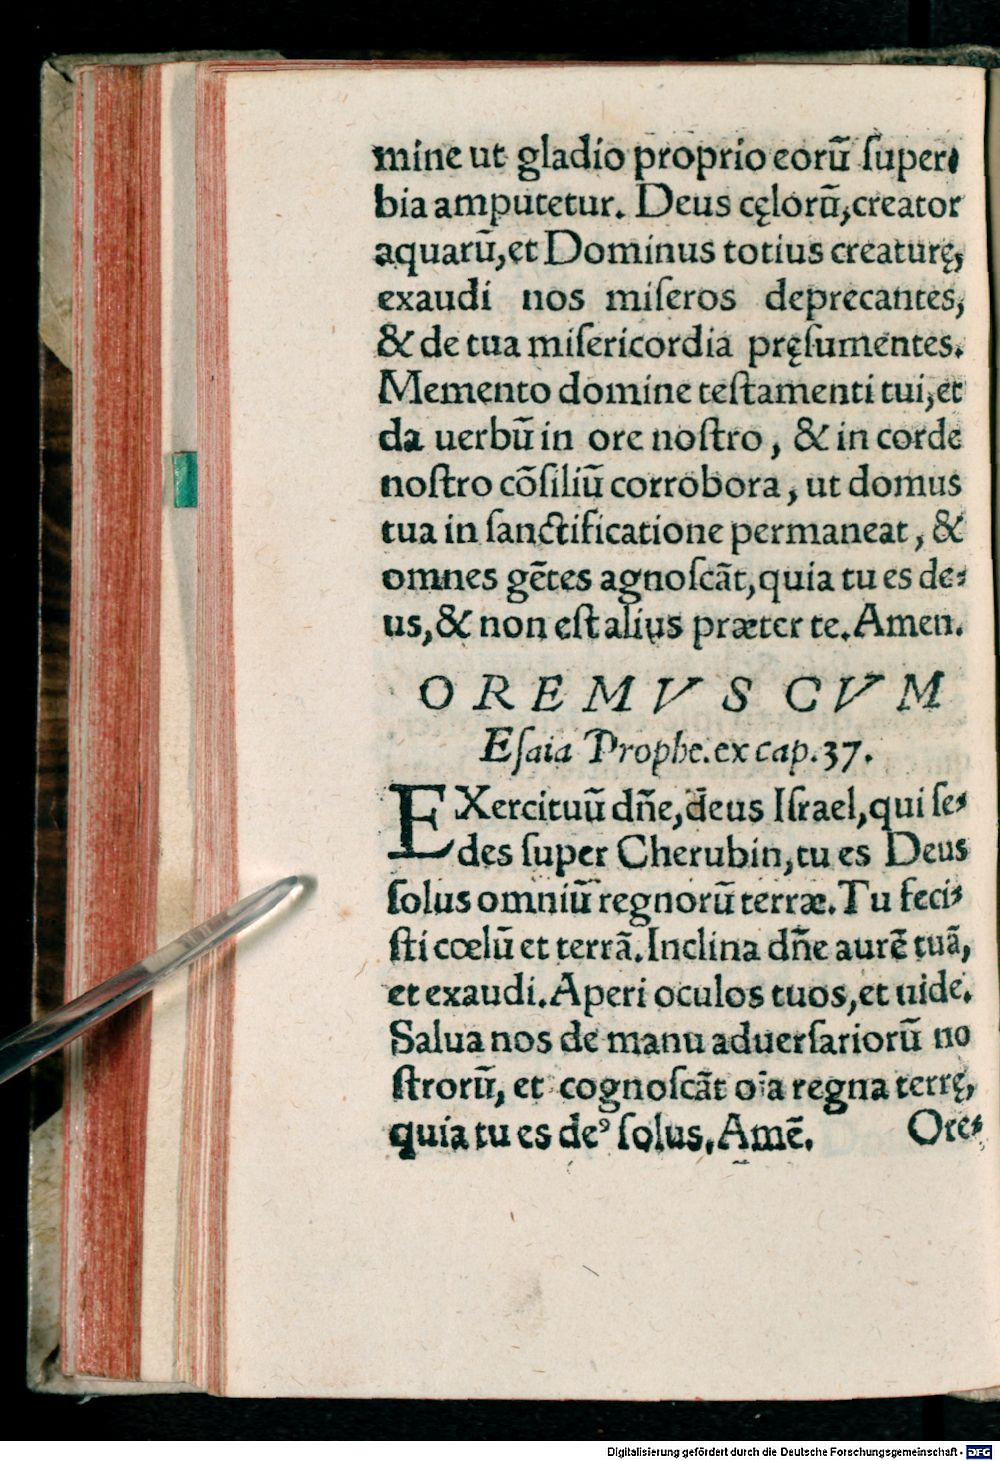 mine ut gladio proprio eorū ſuper⸗
bia amputetur. Deus cęlorū, creator
aquarū, et Dominus totius creaturę,
exaudi nos miſeros deprecantes,
& de tua miſericordia pręſumentes.
Memento domine teſtamenti tui, et
da uerbū in ore noſtro, & in corde
noſtro cōſiliū corrobora, ut domus
tua in ſanctificatione permaneat, &
omnes gētes agnoſcāt, quia tu es de⸗
us, & non eſt alius præter te. Amen.
OREMVS CVM
Eſaia Prophe. ex cap. 37.
EXercituū dn̄e, deus Iſrael, qui ſe⸗
des ſuper Cherubin, tu es Deus
ſolus omniū regnorū terræ. Tu feci⸗
ſti cœlū et terrā. Inclina dn̄e aurē tuā,
et exaudi. Aperi oculos tuos, et uide.
Salua nos de manu aduerſariorū no
ſtrorū, et cognoſcāt oīa regna terrę,
quia tu es deꝰ ſolus. Amē.
Ore⸗
Digitalisierung gefördert durch die Deutsche Forschungsgemeinschaft - DFG